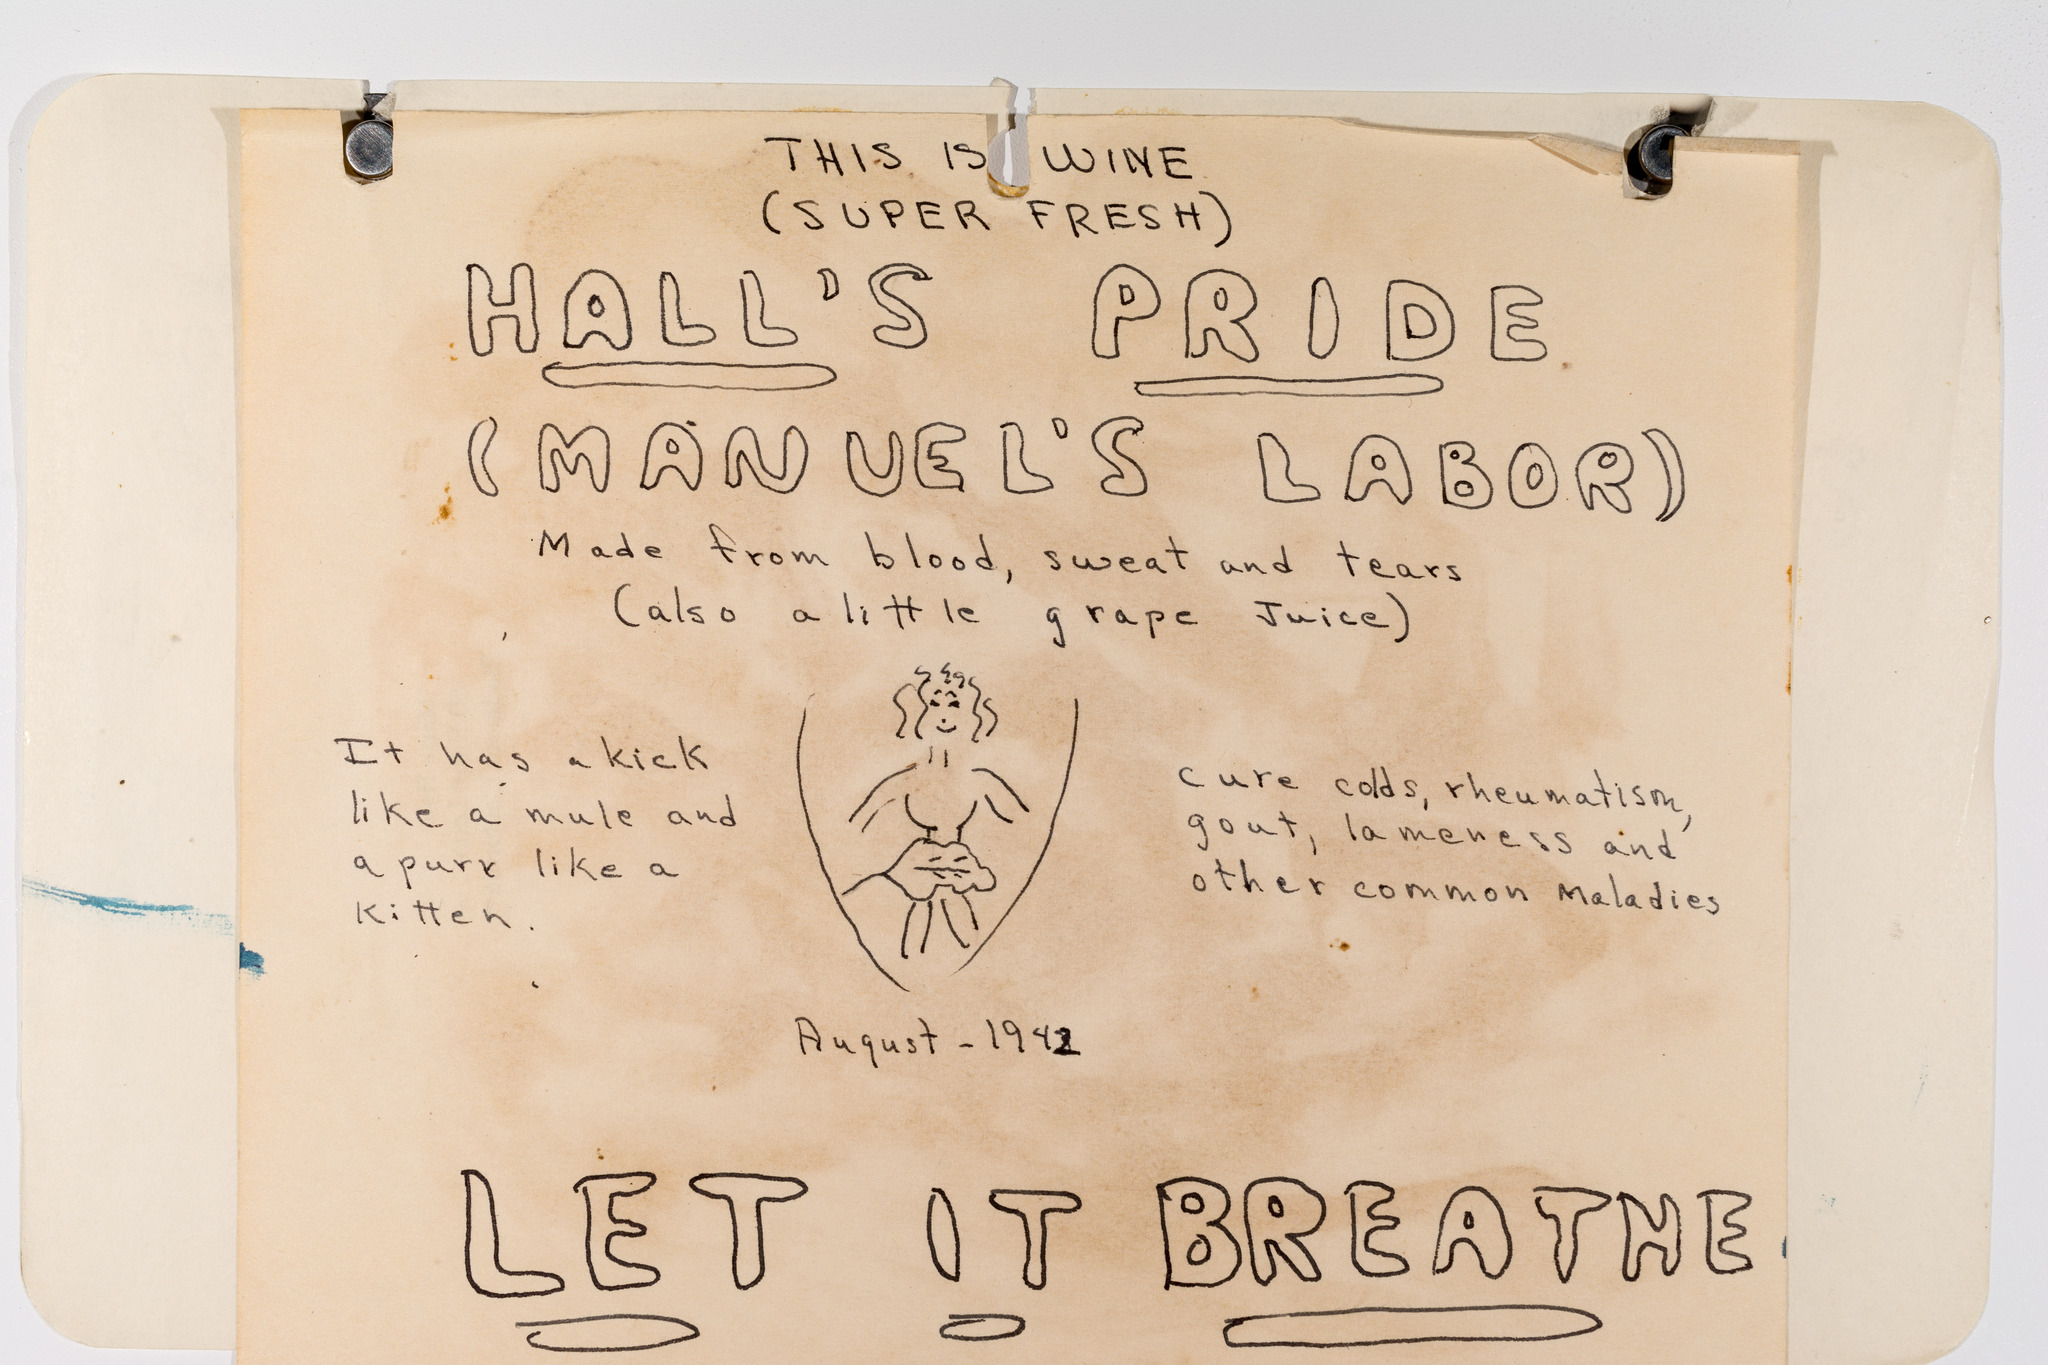 THIS IS WINE
(SUPER FRESH)
HALL'S PRIDE
(MANUEL'S LABOR)
Made from blood, sweat and tears
(also a little grape Juice)
It has a kick
like a mule and
a purr like a
kitten.
cure colds, rheumatism,
gout, lameness and
other common Maladies
August - 1942
LET IT BREATHE